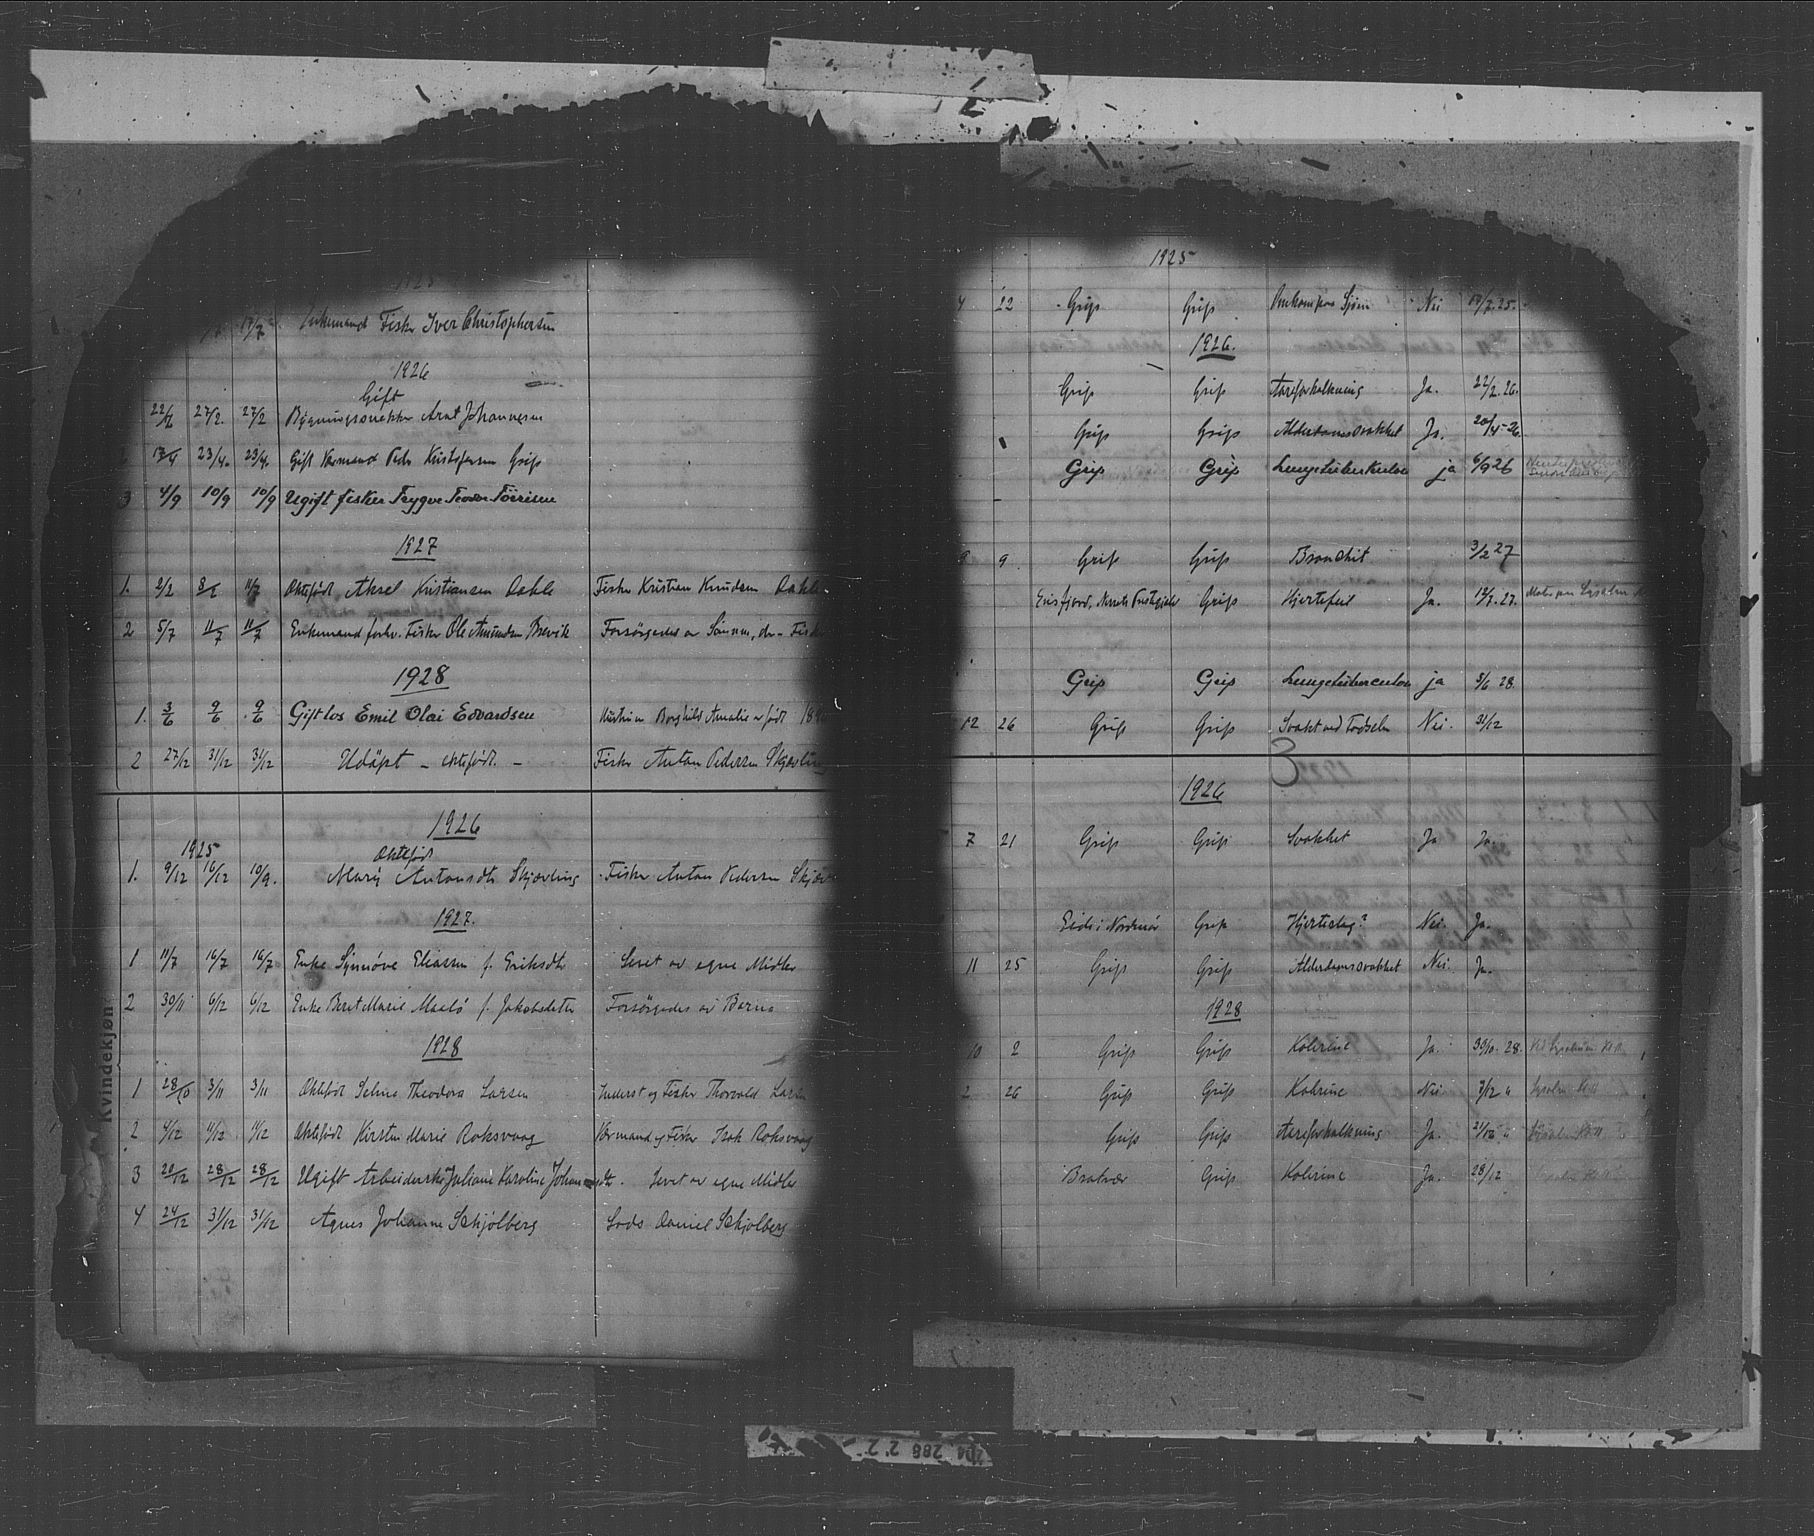 17/7 Enkemand Fisker Iver Christophersen
1926
Gift
22/2 27/2. 27/2 Bygningssnekker Arnt Johannesen
23/4. 23/4. Gift Vormand Peder Kristofersen Grip
3 4/9 10/9 10/9 Ugift fisker Trygve Teodor Tönisen
1927
1. 2/2 11/7 Ektefödt Aksel Kristiansen Dahle Fisker Kristian Knudsen Dahle
2 5/7 11/7 11/7 Enkemand forhv. Fisker Ole Amundsen Brevik Forsörgedes av Sönnen, do - Fisker
1928
1. 3/6 9/6 9/6 Gift los Emil Olai Edvardsen Hustruen Borghild Amalie er född
2 27/12 31/12 31/12 Udöpt - ektefödt. - Fisker Anton Pedersen Skjevling
1926
1925
Ektefödt
1. 9/12 16/12 10/9. Marij Antonsdtr Skjevling Fisker Anton Pedersen
1927.
1 11/7 16/7 16/7 Enke Synnöve Eliassen f. Eriksdtr Levet av egne Midler
2 30/11 6/12 6/12 Enke Beret Marie Maalö f. Jakobsdatter Forsörgedes av Barna
1928
1 28/10 3/11 3/11 Ektefödt Selma Theodora Larsen Inderst og Fisker Thorvald Larsen
2 4/12 11/12 11/12 Ektefödt Kirsten Marie Roksvaag Vormand og Fisker Isak Roksvaag
3 20/12 28/12 28/12 Ugift Arbeiderske Juliane Karoline Johannesdtr. Levet av egne Midler
4 24/12 31/12 31/12 Agnes Johanne Schjölberg Lods Daniel Schjölberg
Kvindekjön
1925
4 22 Grip Grip Omkom paa Sjöen Nei 17/7.25.
1926.
Grip Grip Aareforkalkning Ja. 22/2.26.
Grip Grip Alderdomssvakhet Ja. 20/4-26.
Grip Grip Lungetuberkulose ja 6/9 26
1927
9 Grip Grip Bronchit 3/2 27
Grip Hjertefeil Ja. 12/7.27.
Grip Grip Lungetuberculose ja 5/6 28.
12 26 Grip Grip Svakt ved Födselen Nei. 31/12
3
1926
7 21 Grip Grip Svakhet Ja Ja.
Eide i Nordmör Grip Hjerteslag? Nei. Ja.
11 25 Grip Grip Alderdomssvakhet Nei. Ja.
1928
10 2 Grip Grip Kolerine Ja. 30/10. 28.
2 26 Grip Grip Kolerine Nei 7/12 "
Grip Grip Aareforkalkning Ja. 21/12 "
Bratvær Grip Kolerine Ja. 28/12